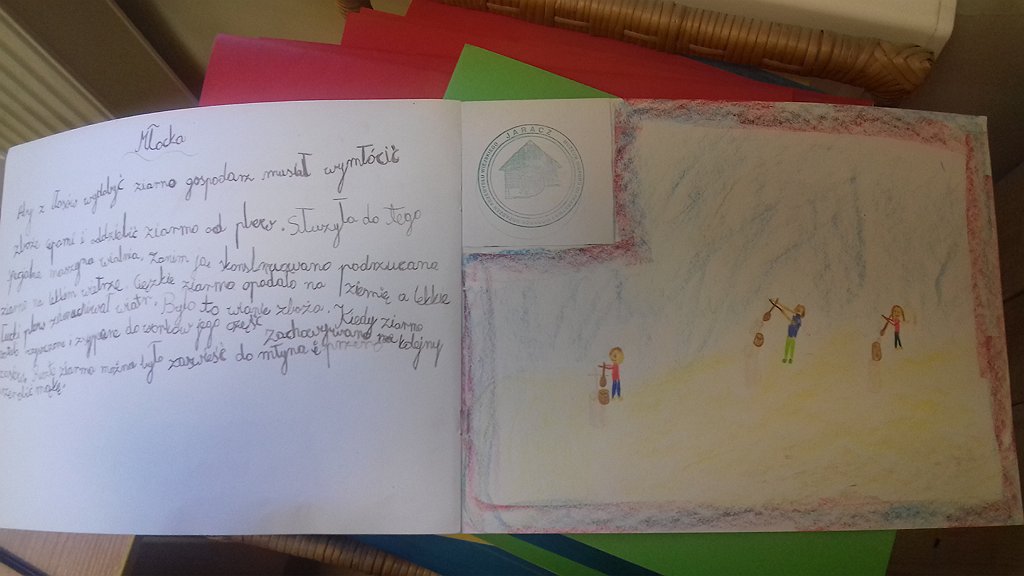 Młocka
Aby z kłosów wydobyć ziarno gospodarz musiał wymłócić
zboże cepami i oddzielić ziarno od plew. Służyła do tego
maszyna wialnia. Zanim ją skonstruowano podrzucano
ziarno na lekkim wietrze. Ciężkie ziarno opadało na ziemię a lekkie
plewy zdmuchiwał wiatr. Było to wianie zboża. Kiedy ziarno
i zsypane do worków jego część Zachowywano na kolejny
ziarno można było zawieść do młyna i
mąkę.
JARACZ